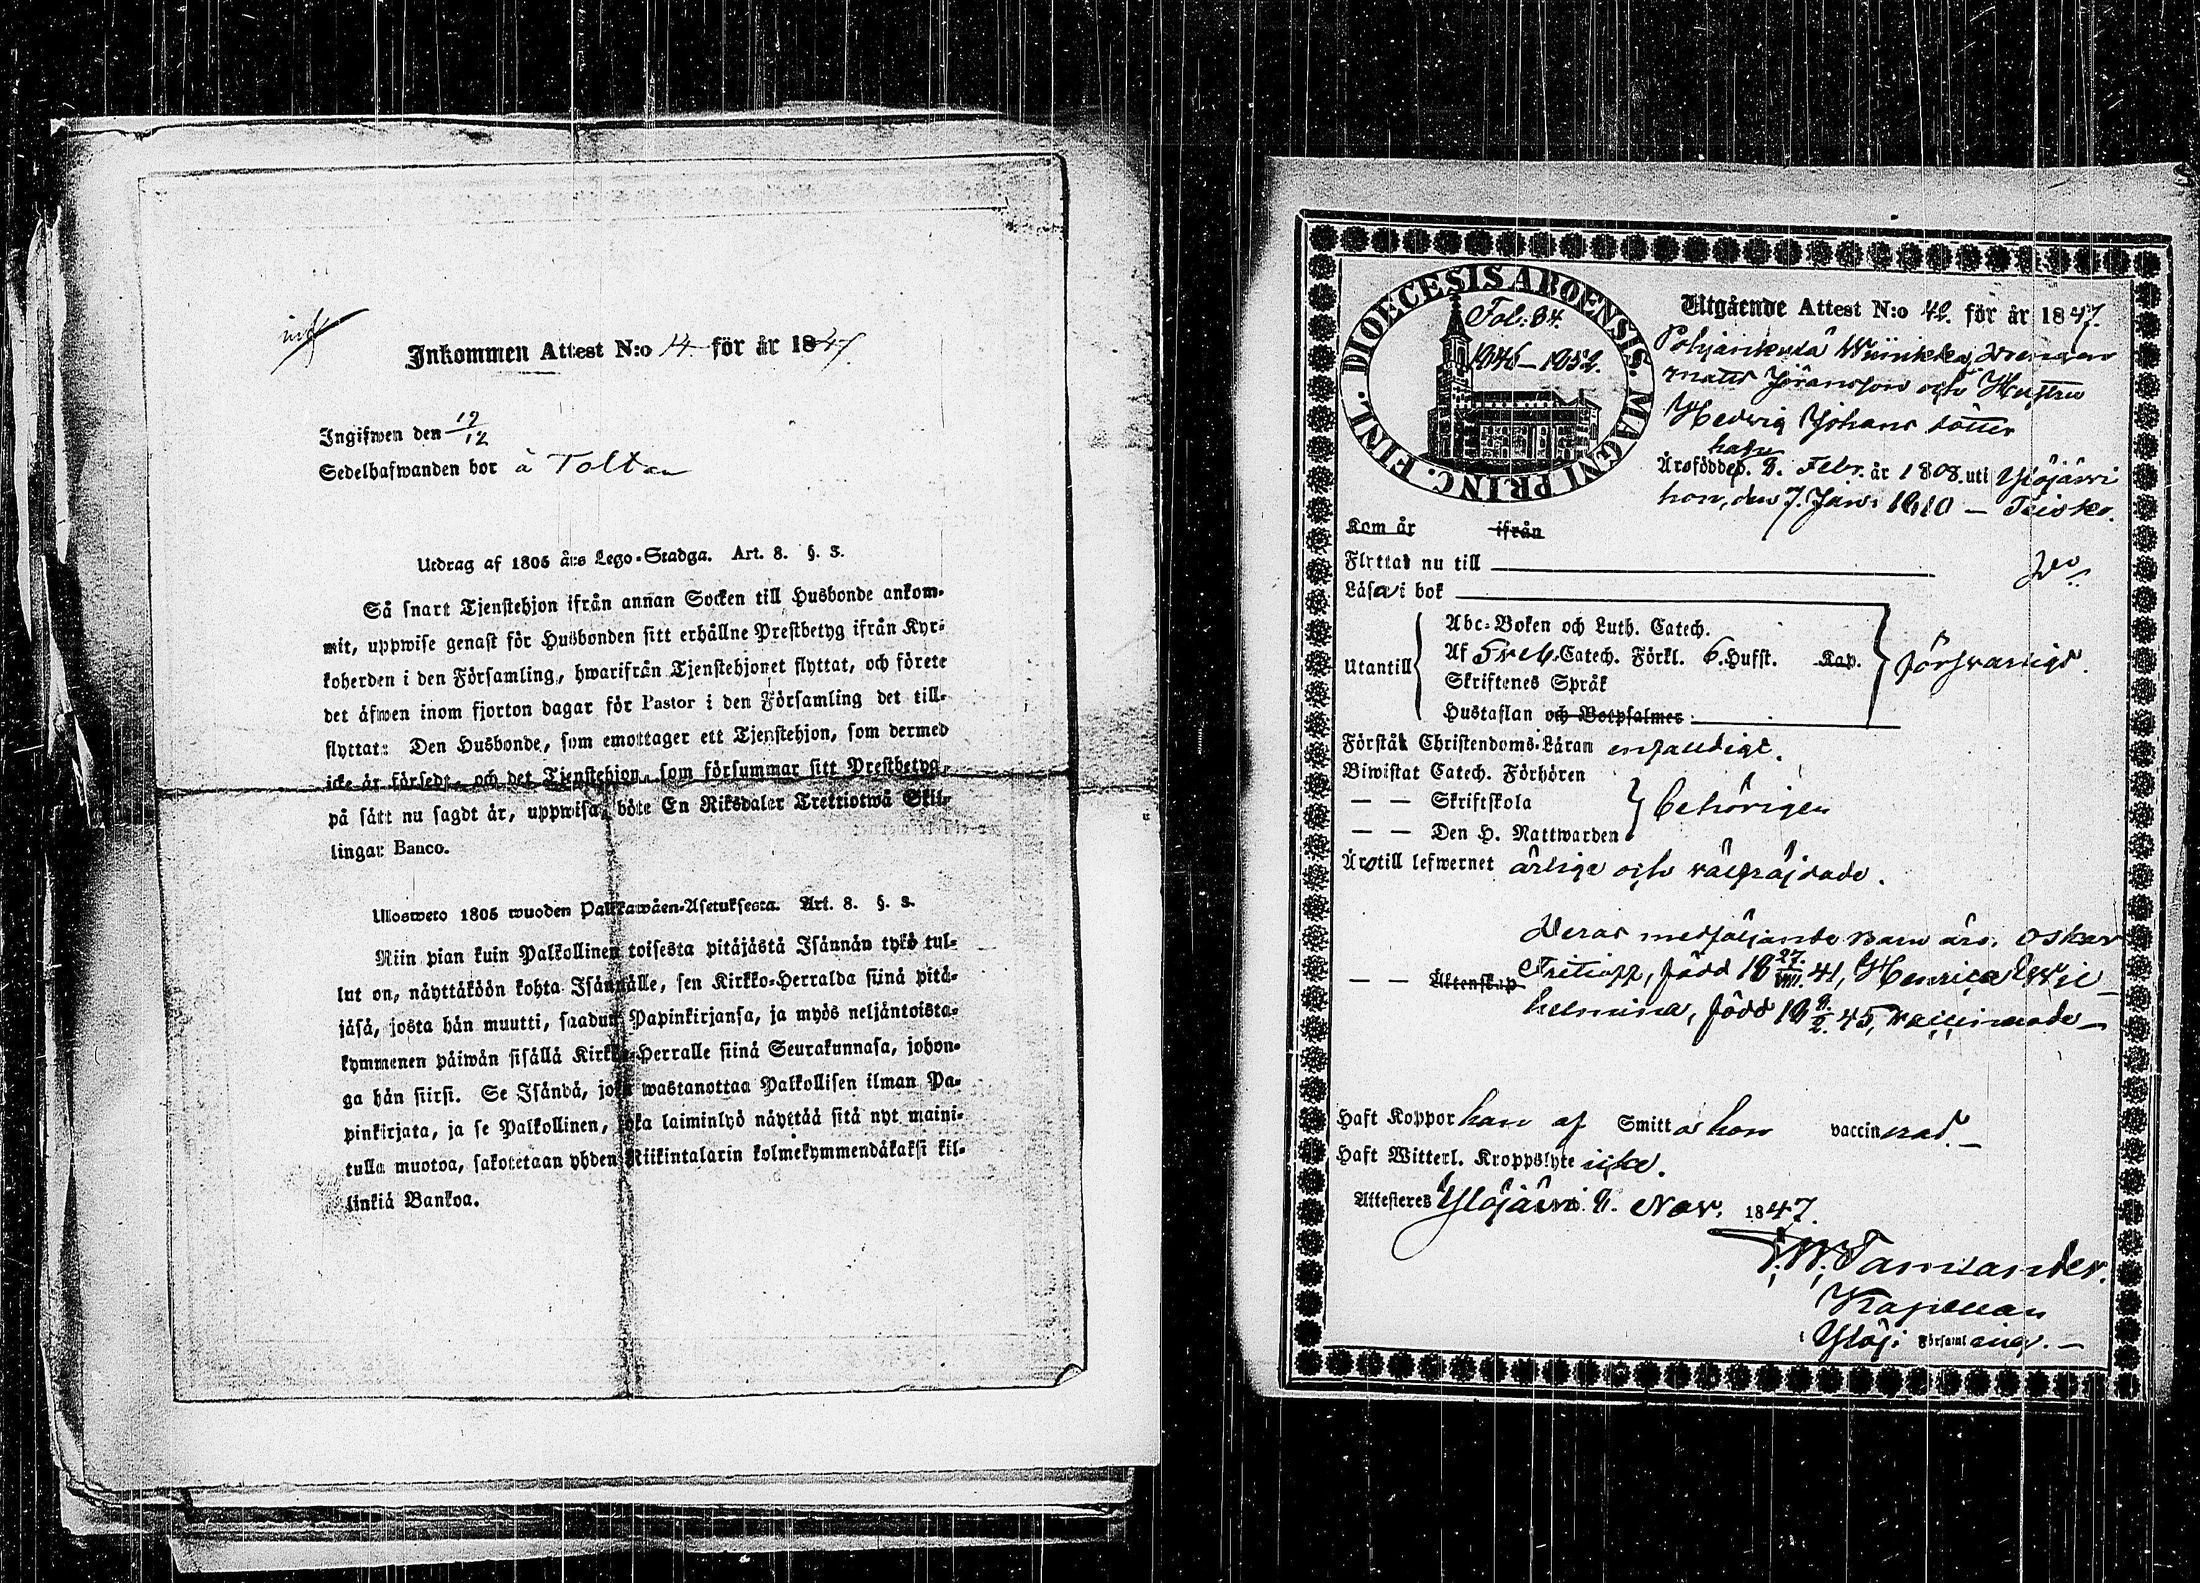 Inkommen Attest N:o 14 för år 1847.
Ingifwen den 12/12
Sedelhafwanden bor å Toltan
Utdrag af 1805 års Lego-Stadga. Art. 8. §. 3.
Så snart Tjenstehjon ifrån annan Socken till Husbonde ankom-
mit, uppwise genast för Husbonden sitt erhållne Prestbetyg ifrån Kyr-
koherden i den Församling, hwarifrån Tjenstehjonet flyttat, och förete
det äfwen inom fjorton dagar för Pastor i den Församling det till-
flyttat: Den Husbonde, som emottager ett Tjenstehjon, som dermed
icke är försedt, och det Tjenstehjon, som försummar sitt Prestbetyg,
på sätt nu sagdt är, uppwisa, böte En Riksdaler Trettiotwå Skil-
lingar Banco.
Ulosweto 1805 wuoden Palkkawäen-Asetuksesta. Art. 8. §. 3.
Niin pian kuin Palkollinen toisesta pitäjästä Isännän tykö tul-
lut on, näyttäköön kohta Isännälle, sen Kirkko-Herralda siinä pitä-
jäsä, josta hän muutti, saadun Papinkirjansa, ja myös neljäntoista-
kymmenen päiwän sisällä Kirkko-Herralle siinä Seurakunnasa, johon-
ga hän siirsi. Se Isändä, joka wastanottaa Palkollisen ilman Pa-
pinkirjata, ja se Palkollinen, joka laiminlyö näyttää sitä nyt maini-
tulla muotoa, sakotetaan yhden Riikintalarin kolmekymmendäkaksi kil-
linkiä Bankoa.
DIOECESIS ABOENSIS. MAGNI PRINC. FINL.
Fol: 84.
1846–1852.
Utgående Attest N:o 42. för år 1847.
Pohjankylä Wiinikka, Drengen
Matts Jöransson och Hustru
Hedvig Johans dotter
han
Äro född den. 9. Febr. år 1808. uti Ylöjärvi
hon, den 7. Jan: 1810 – Teisko.
Kom år ifrån
Flyttat nu till
Läsa i bok
Utantill
Abc-Boken och Luth. Catech.
Af Sveb. Catech. Förkl. 6. Hufst. Kap.
Skriftenes Språk
Hustaflan och Botpsalmer
försvarligt.
Förstå Christendoms-Läran enfaldigt.
Biwistat Catech. Förhören
— — Skriftskola
— — Den H. Nattwarden
behörigen
Äro till lefwernet ärlige och välfräjdade.
Deras medföljande Barn äro. Oskar
— — Äktenskap Fritioff, född 18 27./VIII. 41, Henrica Wil-
helmina, född 18 9./2. 45, vaccinerade —
Haft Koppor han af Smitta hon vaccinerad. —
Haft Witterl. Kroppslyte icke.
Attesteres Ylöjärvi. 9. Nov. 1847.
Kapellan
i Ylöj: Församling. —